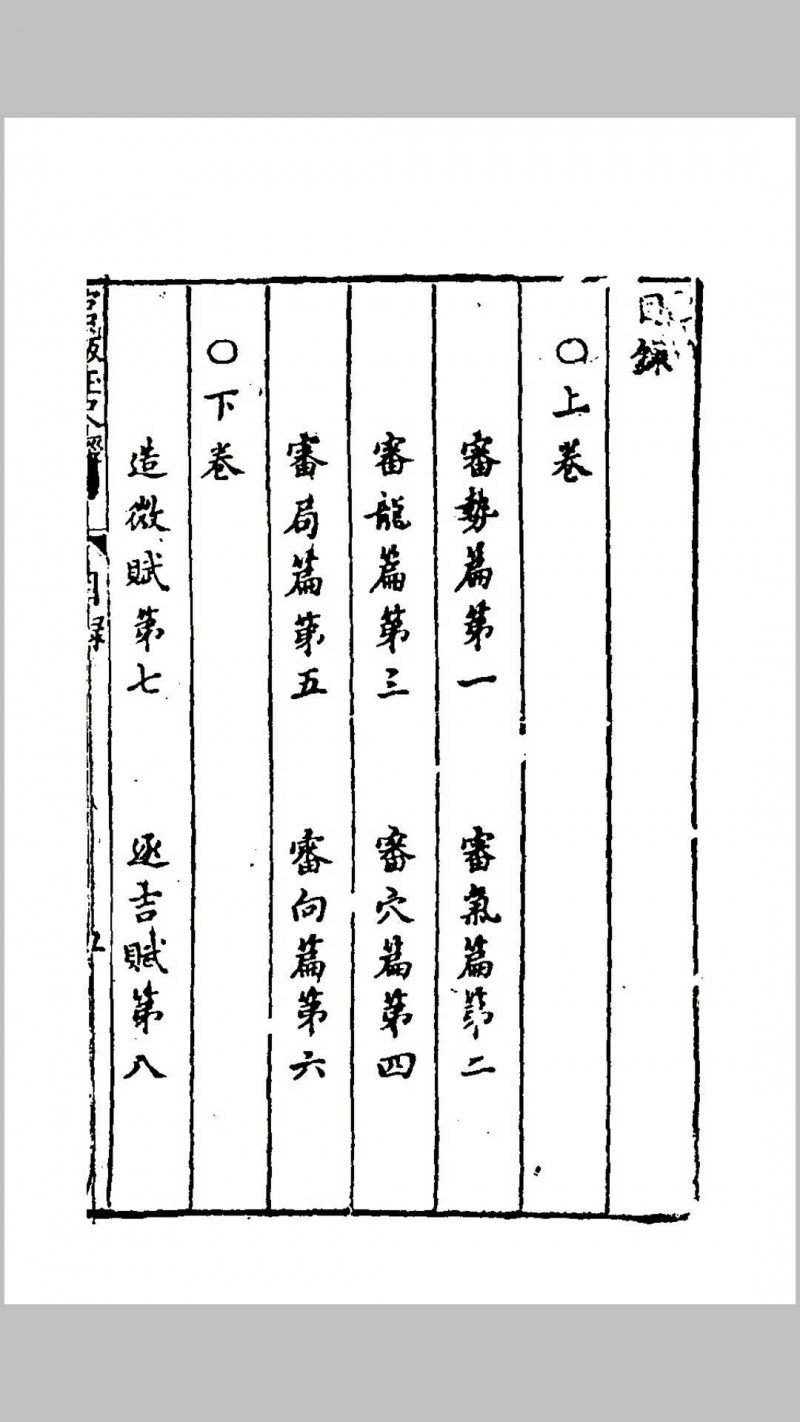 目錄
○上卷
審勢篇第一 審氣篇第二
審龍篇第三 審穴篇第四
審局篇第五 審向篇第六
○下卷
造微賦第七 逐吉賦第八
目録